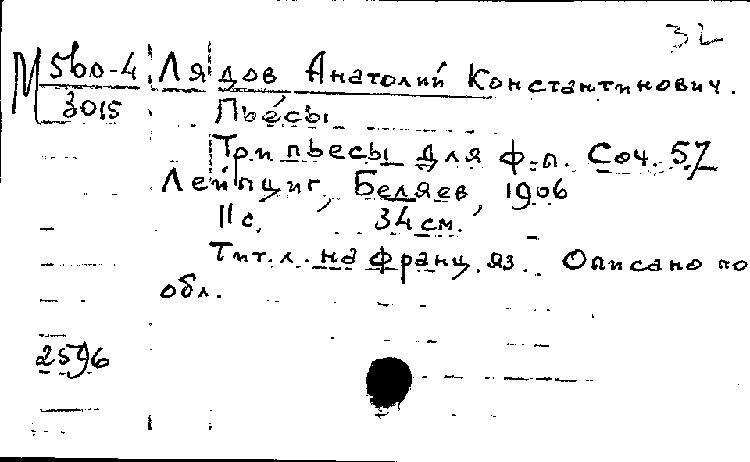 32
М 560-4 Лядов Анатолий Константинович.
3015 Пьесы
Три пьесы для ф-п. Соч. 57
Лейпциг, Беляев, 1906
11 с, 34 см.
Тит. л. на франц. яз. Описано по
обл.
2596